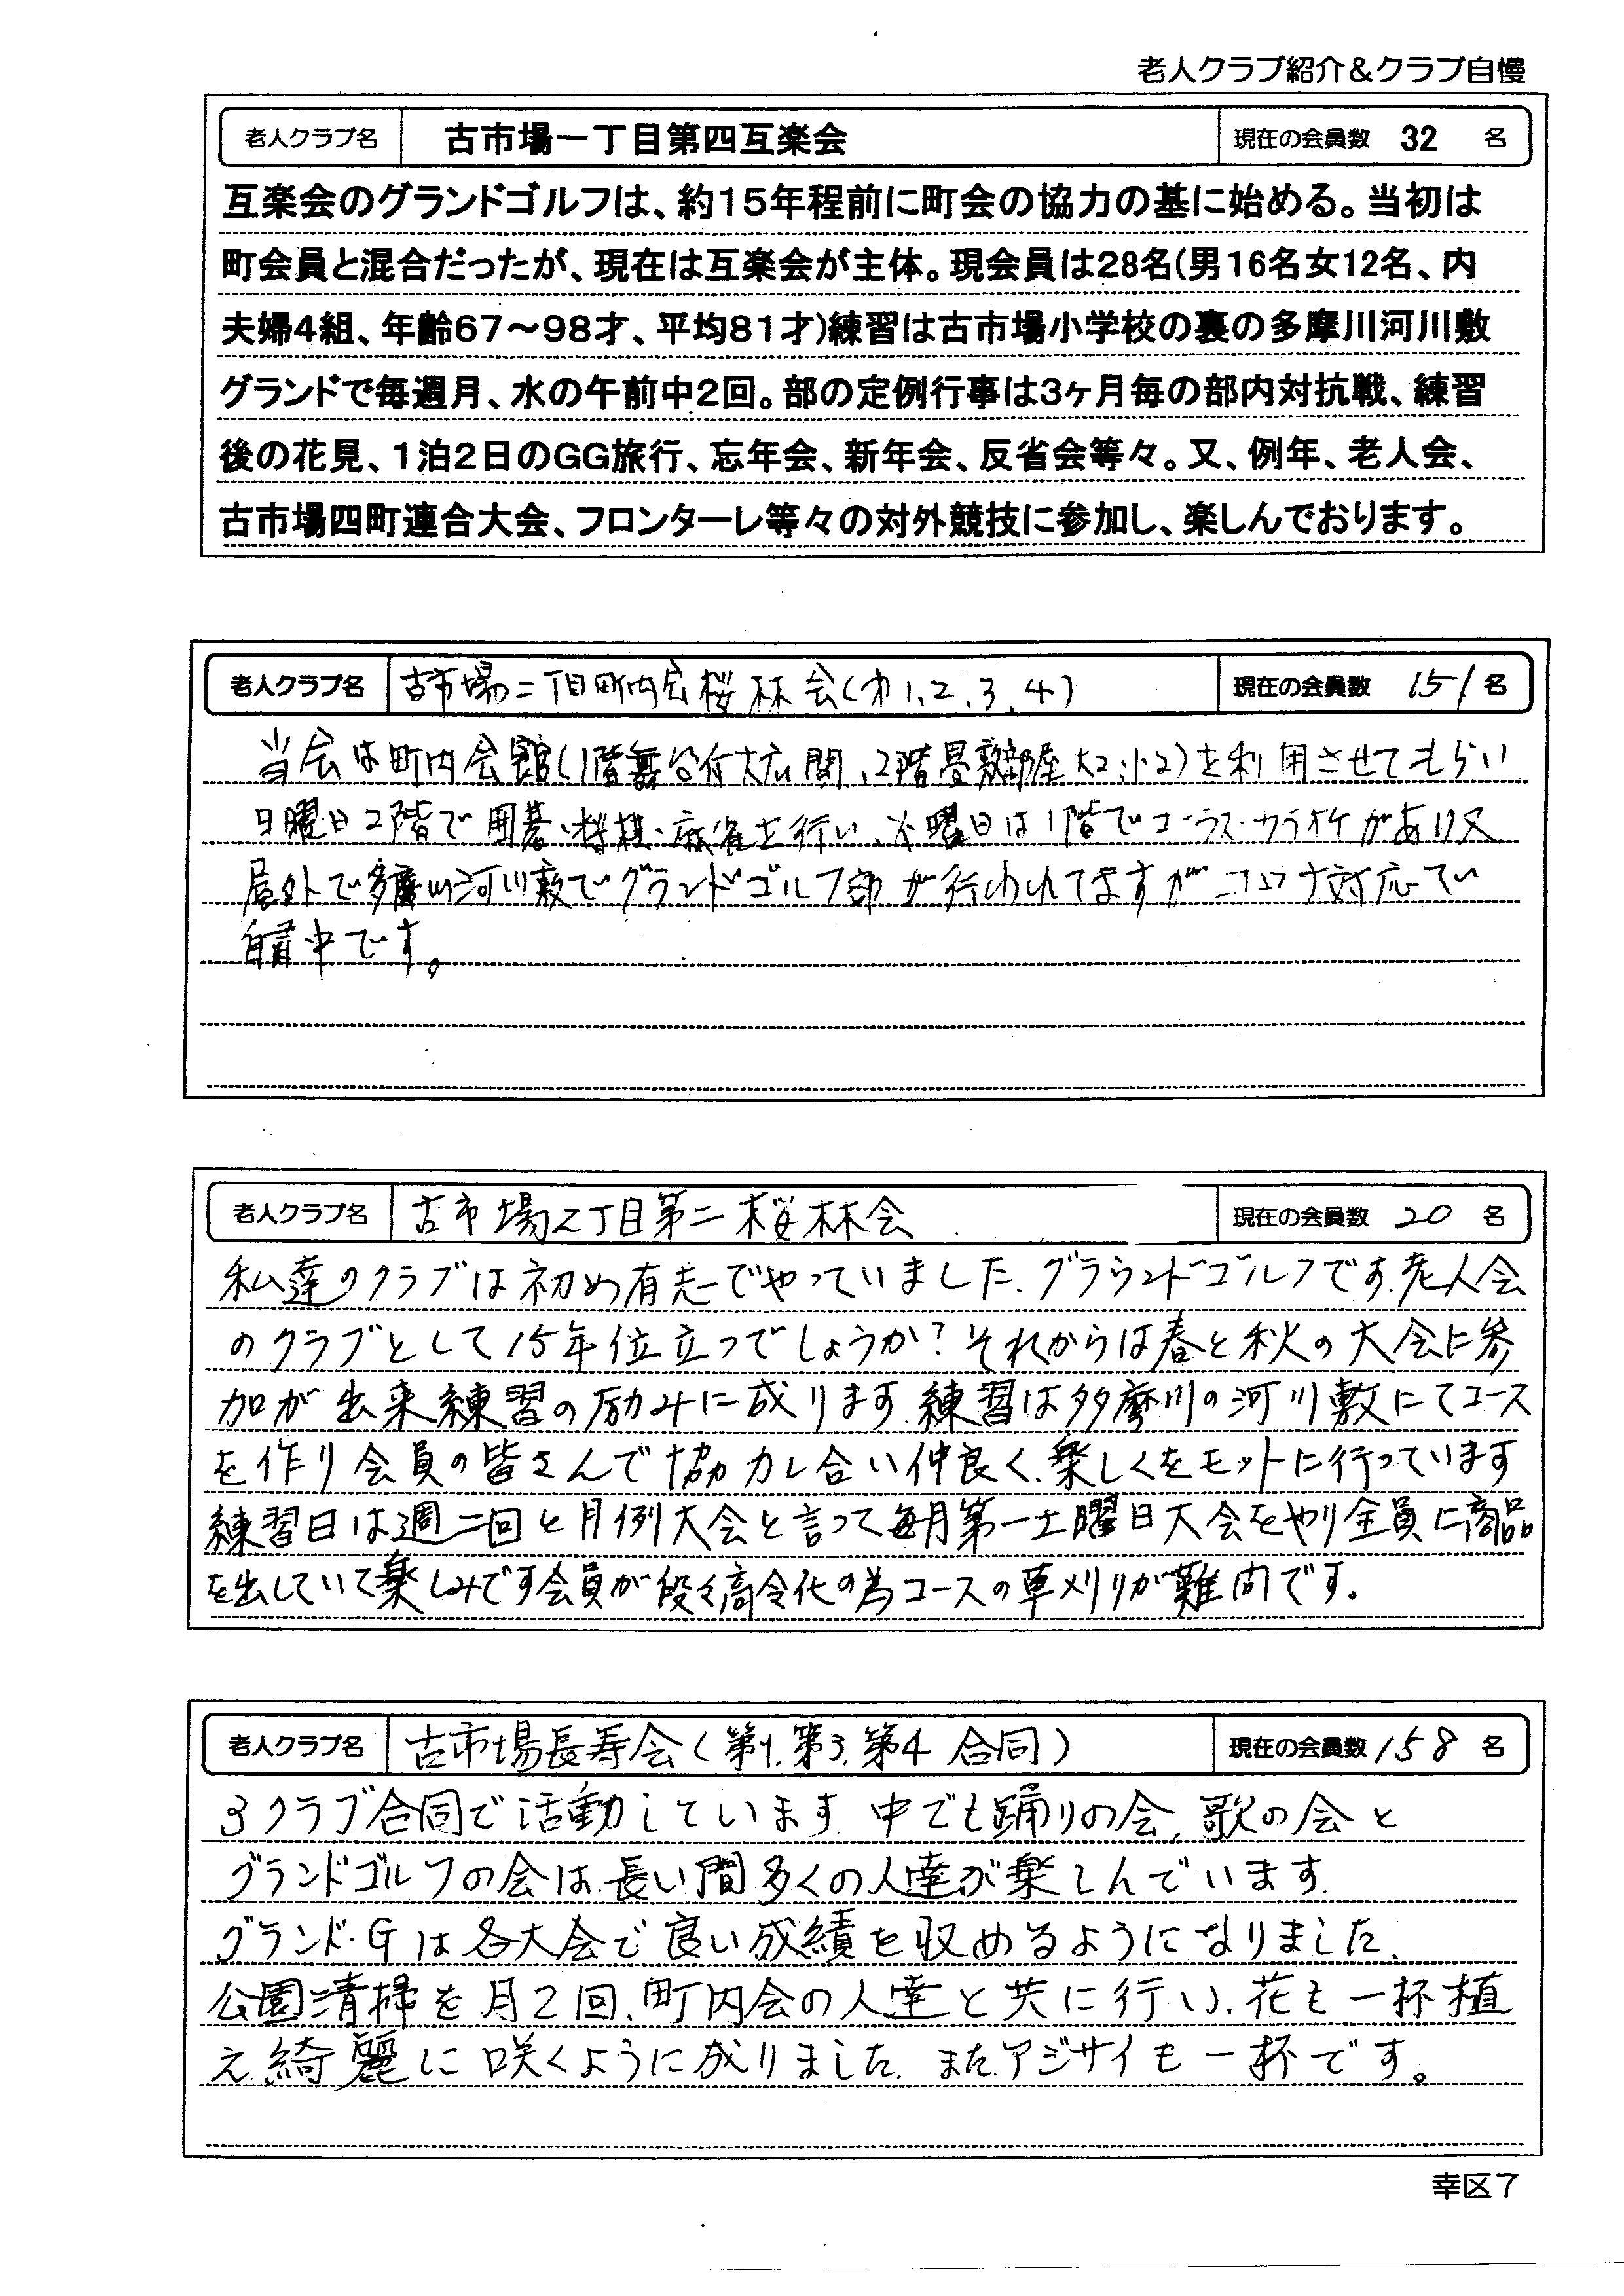 老人クラブ紹介＆クラブ自慢
老人クラブ名 古市場一丁目第四互楽会 現在の会員数 32 名
互楽会のグランドゴルフは、約15年程前に町会の協力の基に始める。当初は
町会員と混合だったが、現在は互楽会が主体。現会員は28名(男16名女12名、内
夫婦4組、年齢67～98才、平均81才)練習は古市場小学校の裏の多摩川河川敷
グランドで毎週月、水の午前中2回。部の定例行事は3ヶ月毎の部内対抗戦、練習
後の花見、1泊2日のGG旅行、忘年会、新年会、反省会等々。又、例年、老人会、
古市場四町連合大会、フロンターレ等々の対外競技に参加し、楽しんでおります。
老人クラブ名 古市場二丁目町内会桜林会(才1、2、3、4) 現在の会員数 151 名
当会は町内会館(1階舞台付大広間、2階畳敷部屋大2、小2)を利用させてもらい
日曜日2階で囲碁・将棋・麻雀を行い、火曜日は1階でコーラス・カラオケがあり又
屋外で多摩川河川敷でグランドゴルフ部が行われてますがコロナ対応てい
自粛中です。
老人クラブ名 古市場2丁目第二桜林会 現在の会員数 20 名
私達のクラブは初め有志でやっていました。グラウンドゴルフです。老人会
のクラブとして15年位立つでしょうか？それからは春と秋の大会に参
加が出来練習の励みに成ります。練習は多摩川の河川敷にてコース
を作り会員の皆さんで協力し合い仲良く、楽しくをモットに行っています
練習日は週二回と月例大会と言って毎月第一土曜日大会をやり全員に商品
を出していて楽しみです会員が段々高令化の為コースの草刈りが難問です。
老人クラブ名 古市場長寿会(第1、第3、第4 合同) 現在の会員数 158 名
3クラブ合同で活動しています。中でも踊りの会、歌の会と
グランドゴルフの会は、長い間多くの人達が楽しんでいます。
グランド・Gは各大会で良い成績を収めるようになりました。
公園清掃を月2回、町内会の人達と共に行い、花も一杯植
え綺麗に咲くように成りました。またアジサイも一杯です。
幸区7